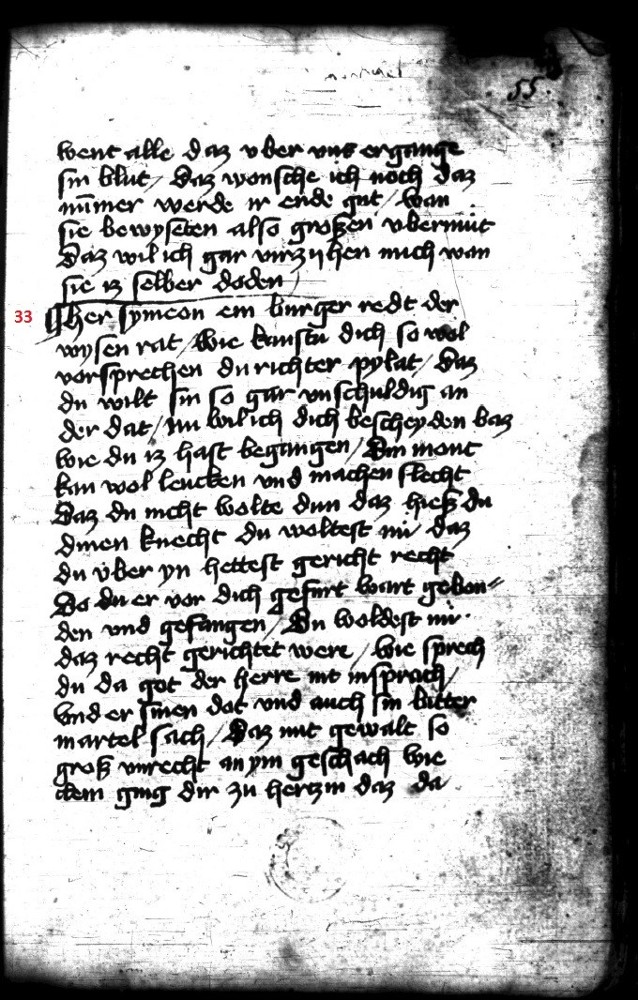 55.
went alle daz vber vns ergange
sin blut / Daz wonsche ich noch daz
nūmer werde ir ende gut / wan
sie bewyseten also groszen vbermüt
Daz wil ich gar virzyhen mich wan
sie iz selber doden
33 Her symeon ein burger redt der
wysen rat / Wie kanstu dich so wol
vorsprechen du richter pylat / Daz
du wilt sin so gar vnschuldig an
der dat / nu wil ich dich bescheyden baz
wie du iz hast begangen / Din mont
kan wol leucken vnd machen slecht
Daz du nicht wolte dun daz hiesz du
dinen knecht du woltest nü daz
du über yn hettest gericht recht
Do du er vor dich gefurt wart gebon-
den vnd gefangen / Du woldest nü
daz recht gerichtet were / wie sprech
du da got der herre nit insprach /
vnd er sinen dot vnd auch sin bitter
martel sach / Daz mit gewalt so
grosz vnrecht an ym geschach wie
dem ging dir zu hertzin daz da